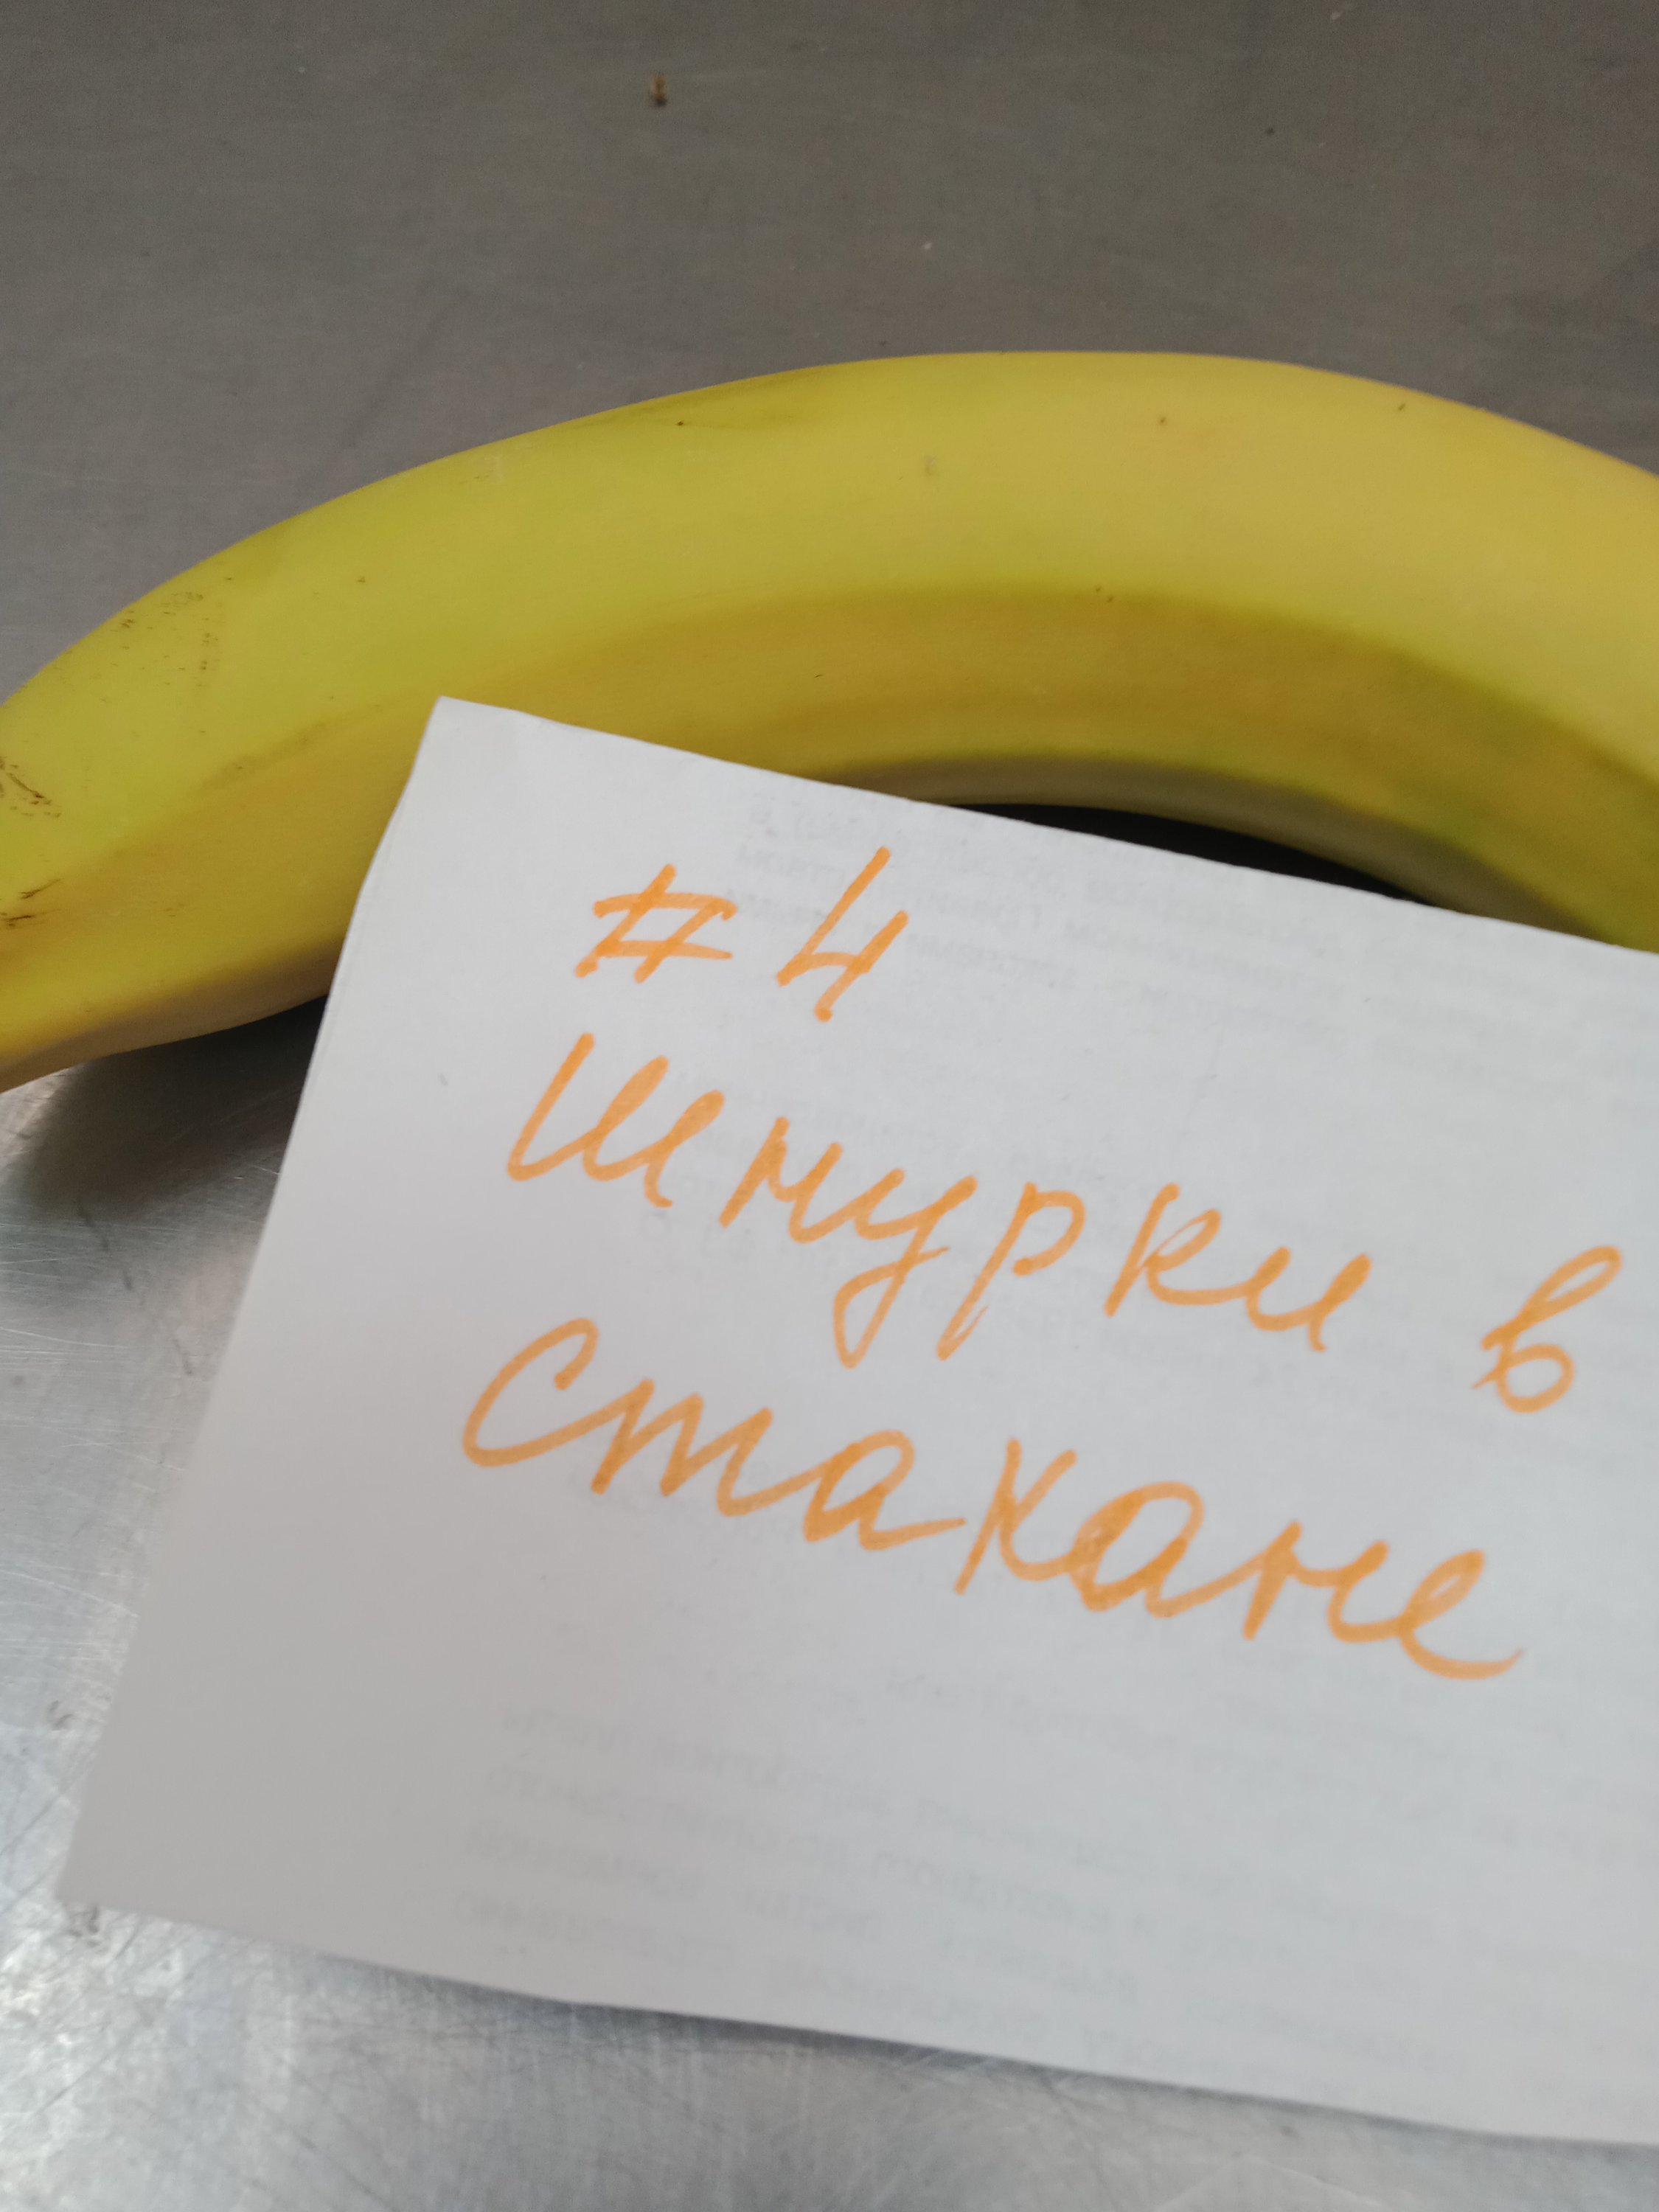 #4
Шнурки в
стакане